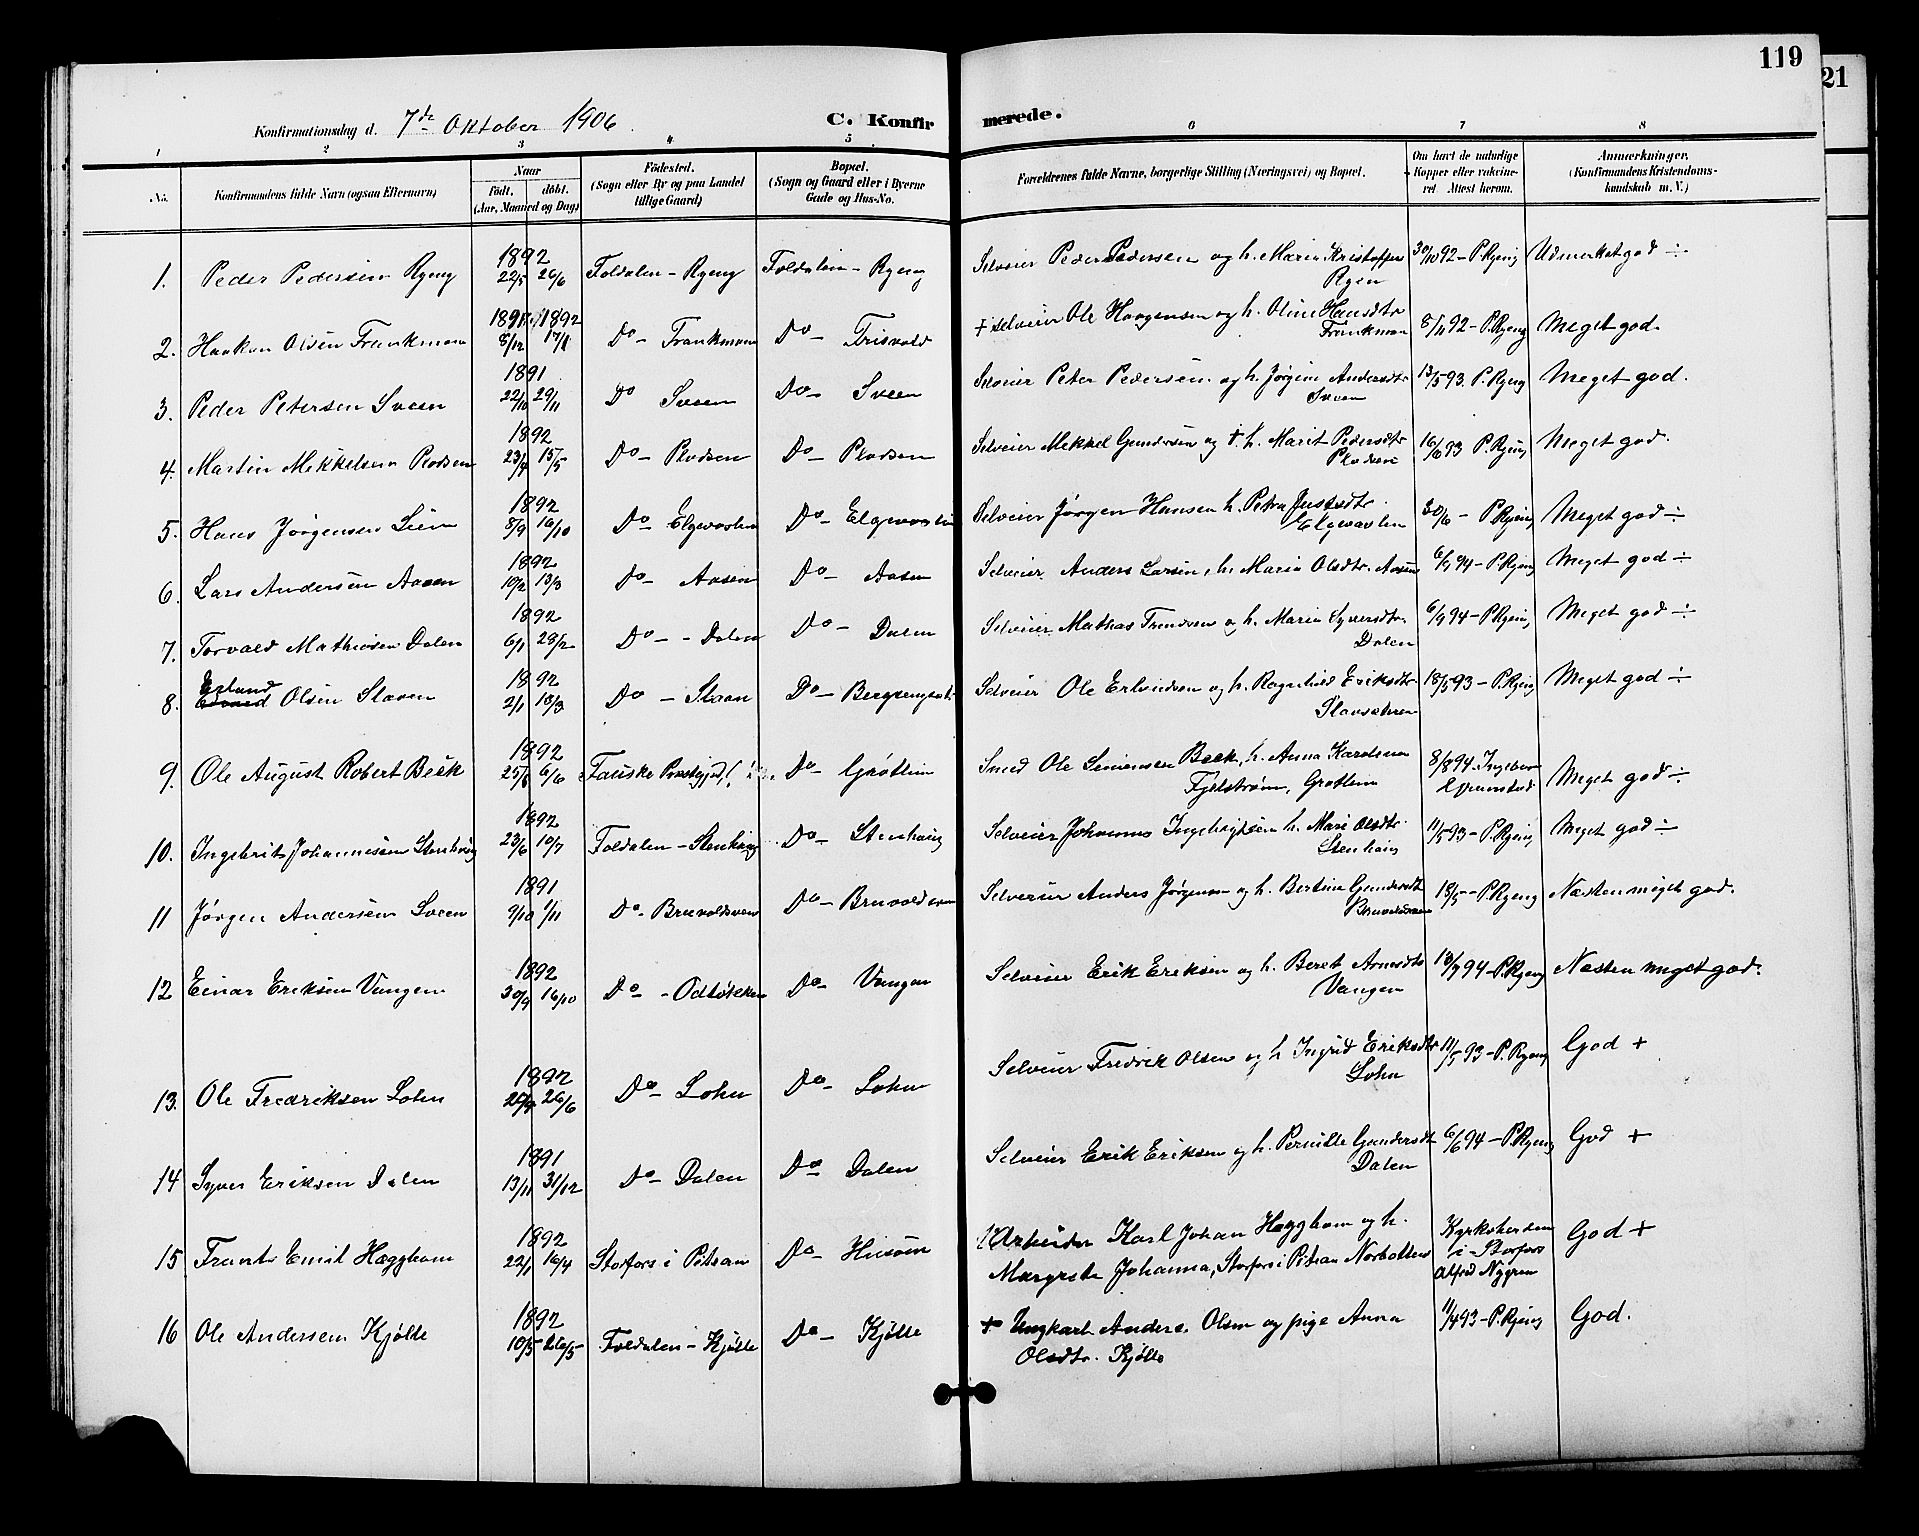 119
21
Konfirmationsdag d. 7de Oktober 1906.
C. Konfirmerede.
1 2 3 4 5 6 7 8
No. Konfirmandens fulde Navn (ogsaa Efternavn) Naar Födt, döbt. (Aar, Maaned og Dag) Födested. (Sogn eller By og paa Landet tillige Gaard) Bopæl. (Sogn og Gaard eller i Byerne Gade og Hus-No. Forældrenes fulde Navne, borgerlige Stilling (Næringsvei) og Bopæl. Om havt de naturlige Kopper eller vakcineret Attest herom. Anmærkninger. (Konfirmandens Kristendomskundskab m. V.)
1. Peder Pedersen Ryeng 1892 22/5 26/6 Foldalen - Ryeng Foldalen - Ryeng Selveier Peder Pedersen og h. Marie Kristoffers Ryen 30/10 92 - P. Ryeng Udmerket god ÷
2. Haakon Olsen Frankmoen 1891 8/12 1892 17/1 Do - Frankmoen Do - Trisvold + Selveier Ole Haagensen og h. Oline Hansdtr Frankmoen 8/11 92 - P. Ryeng Meget god.
3. Peder Petersen Sveen 1891 22/10 29/11 Do Sveen Do - Sveen Selveier Peter Pedersen og h. Jørgine Andersdtr Sveen 13/5 93. P. Ryeng Meget god.
4. Martin Mikkelsen Plodsen 1892 23/4 15/5 Do - Plodsen Do - Plodsen Selveier Mikkel Gundersen og + h. Marit Pedersdtr Plodsen 16/6 93 P. Ryeng Meget god.
5. Hans Jørgensen Lien 1892 8/9 16/10 Do - Elgevaslien Do - Elgevaslien Selveier Jørgen Hansen h. Petra Justsdtr. Elgevaslien 30/6 - P. Ryeng Meget god ÷
6. Lars Andersen Aasen 1892 10/2 13/3 Do - Aasen Do - Aasen Selveier Anders Larsen, h. Marie Olsdtr. Aasen 6/9 94 - P. Ryeng Meget god ÷
7. Torvald Mathiasen Dalen 1892 6/1 28/2 Do - - Dalen Do - Dalen Selveier Mathias Trondsen og h. Marie Syversdtr. Dalen 6/9 94 - P. Ryeng Meget god ÷
8. Erland Olsen Slaaen 1892 2/1 13/3 Do - Slaan Do - Selveier Ole Erlandsen og h. Ragnhild Eriksdtr Slaasætren 18/5 93 - P. Ryeng Meget god ÷
9. Ole August Robert Beck 1892 25/ 6/6 Fauske Præstegjeld Do - Grøtlien Smed Ole Simensen Beck, h. Anna Karolina Fjelstrøm, Grøtlien 8/8 94. Meget god ÷
10. Ingebrit Johannesen Stenhaug 1892 23/6 10/7 Foldalen - Stenhaug Do - Stenhaug Selveier Johannes Ingebrigtsen h. Mari Olsdtr. Stenhaug 11/5 93 - P. Ryeng Meget god ÷
11 Jørgen Andersen Sveen 1891 9/10 1/11 Do - Bruvoldsveen Do - Bruvoldsveen Selveier Anders Jørgensen og h. Bertine Gundersdtr Bruvoldsveen 18/5 - P. Ryeng Næsten meget god.
12 Einar Eriksen Vangen 1892 30/9 16/10 Do - Odløkken Do - Vangen Selveier Erik Eriksen og h. Beret Arnesdtr Vangen 13/9 94 - P. Ryeng Næsten meget god.
13. Ole Fredriksen Lohn 1892 26/6 Do - Lohn Do - Lohn Selveier Fredrik Olsen og h Ingrid Eriksdtr Lohn 11/5 93 - P. Ryeng God +
14 Syver Eriksen Dalen 1891 13/11 31/12 Do - Dalen Do - Dalen Selveier Erik Eriksen og h. Pernille Gundersdt Dalen 6/6 94 - P. Ryeng God +
15 Frants Emil Hæggbom 1892 22/1 16/4 Storfors i Pitean Do - Husum Arbeider Karl Johan Hæggbom og h. Margreta Johanna, Storfors i Pitean Norbotten Kyrkoherden i Storfors Alfred Nygren God +
16 Ole Andersen Kjølle 1892 10/5 26/5 Foldalen - Kjølle Do - Kjølle + Ungkarl Anders Olsen og pige Anna Olsdtr. Kjølle 11/4 93 - P. Ryeng God.